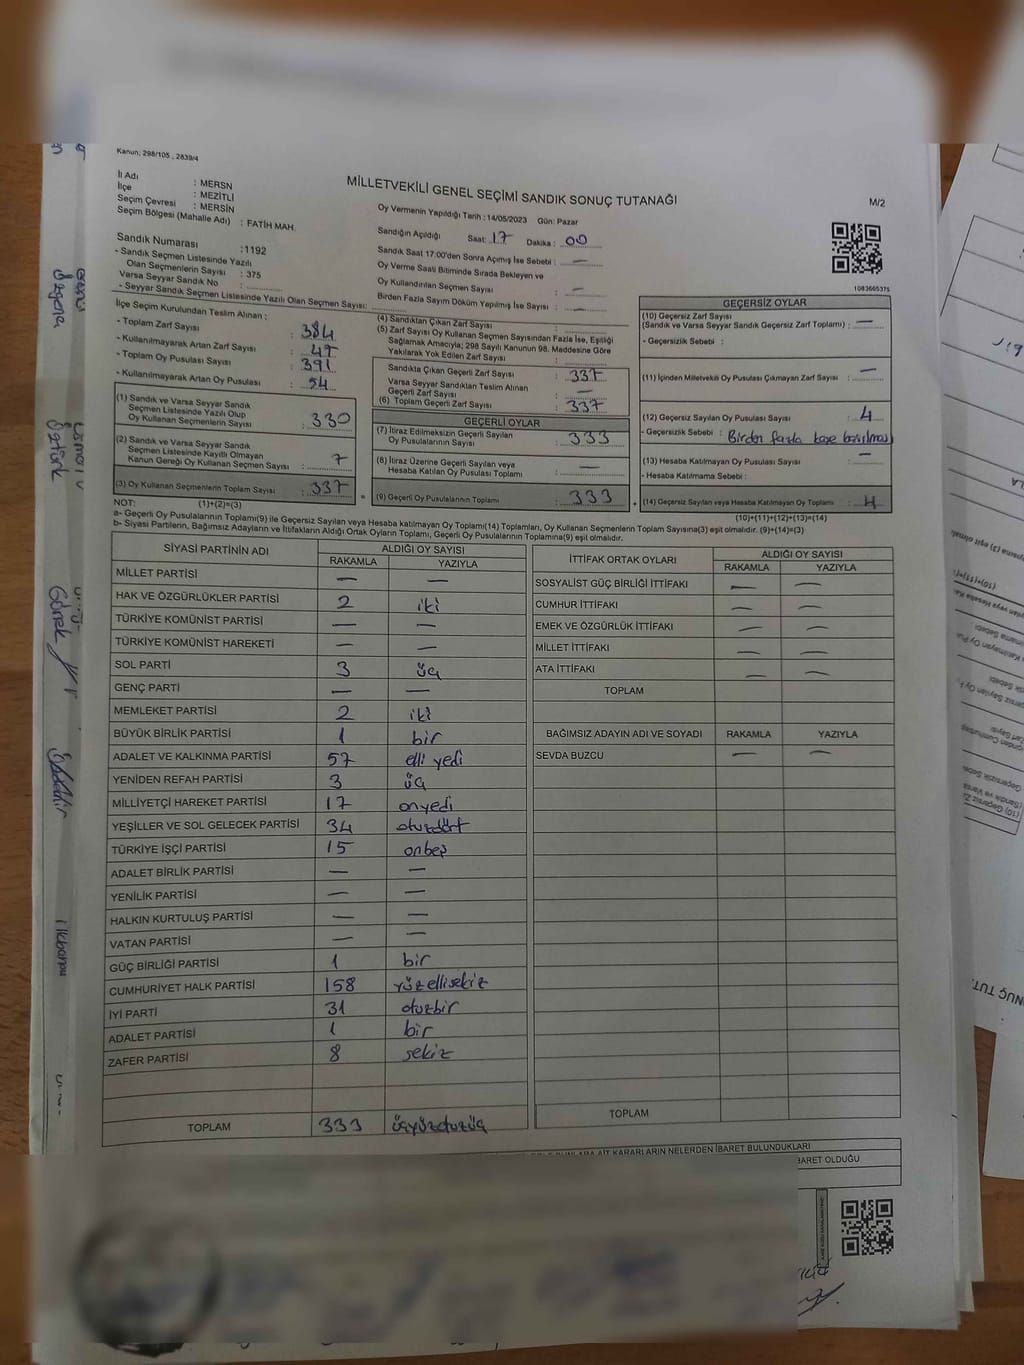 Kanun; 298/105 , 2839/4
MİLLETVEKİLİ GENEL SEÇİMİ SANDIK SONUÇ TUTANAĞI
M/2
İl Adı : MERSN
İlçe : MEZİTLİ
Seçim Çevresi : MERSİN
Seçim Bölgesi (Mahalle Adı) : FATİH MAH.
Sandık Numarası :1192
- Sandık Seçmen Listesinde Yazılı
Olan Seçmenlerin Sayısı : 375
Varsa Seyyar Sandık No :
- Seyyar Sandık Seçmen Listesinde Yazılı Olan Seçmen Sayısı:
Oy Vermenin Yapıldığı Tarih : 14/05/2023 Gün: Pazar
Sandığın Açıldığı Saat: 17 Dakika : 00
Sandık Saat 17:00'den Sonra Açılmış İse Sebebi : —
Oy Verme Saati Bitiminde Sırada Bekleyen ve
Oy Kullandırılan Seçmen Sayısı : —
Birden Fazla Sayım Döküm Yapılmış İse Sayısı : —
1083665375
İlçe Seçim Kurulundan Teslim Alınan :
- Toplam Zarf Sayısı : 384
- Kullanılmayarak Artan Zarf Sayısı : 47
- Toplam Oy Pusulası Sayısı : 391
- Kullanılmayarak Artan Oy Pusulası : 54
(1) Sandık ve Varsa Seyyar Sandık
Seçmen Listesinde Yazılı Olup
Oy Kullanan Seçmenlerin Sayısı : 330
(2) Sandık ve Varsa Seyyar Sandık
Seçmen Listesinde Kayıtlı Olmayan
Kanun Gereği Oy Kullanan Seçmen Sayısı : 7
(3) Oy Kullanan Seçmenlerin Toplam Sayısı : 337
(4) Sandıktan Çıkan Zarf Sayısı :
(5) Zarf Sayısı Oy Kullanan Seçmen Sayısından Fazla İse, Eşitliği
Sağlamak Amacıyla; 298 Sayılı Kanunun 98. Maddesine Göre
Yakılarak Yok Edilen Zarf Sayısı :
Sandıkta Çıkan Geçerli Zarf Sayısı : 337
Varsa Seyyar Sandıktan Teslim Alınan
Geçerli Zarf Sayısı : —
(6) Toplam Geçerli Zarf Sayısı : 337
GEÇERLİ OYLAR
(7) İtiraz Edilmeksizin Geçerli Sayılan
Oy Pusulalarının Sayısı : 333
(8) İtiraz Üzerine Geçerli Sayılan veya
Hesaba Katılan Oy Pusulası Toplamı : —
(9) Geçerli Oy Pusulalarının Toplamı : 333
GEÇERSİZ OYLAR
(10) Geçersiz Zarf Sayısı
(Sandık ve Varsa Seyyar Sandık Geçersiz Zarf Toplamı) : —
- Geçersizlik Sebebi :
(11) İçinden Milletvekili Oy Pusulası Çıkmayan Zarf Sayısı : —
(12) Geçersiz Sayılan Oy Pusulası Sayısı : 4
- Geçersizlik Sebebi : Birden fazla kaşe basılması
(13) Hesaba Katılmayan Oy Pusulası Sayısı : —
- Hesaba Katılmama Sebebi :
(14) Geçersiz Sayılan veya Hesaba Katılmayan Oy Toplamı : 4
NOT: (1)+(2)=(3)
(10)+(11)+(12)+(13)=(14)
a- Geçerli Oy Pusulalarının Toplamı(9) ile Geçersiz Sayılan veya Hesaba katılmayan Oy Toplamı(14) Toplamları, Oy Kullanan Seçmenlerin Toplam Sayısına(3) eşit olmalıdır. (9)+(14)=(3)
b- Siyasi Partilerin, Bağımsız Adayların ve İttifakların Aldığı Ortak Oyların Toplamı, Geçerli Oy Pusulalarının Toplamına(9) eşit olmalıdır.
SİYASİ PARTİNİN ADI ALDIĞI OY SAYISI
RAKAMLA YAZIYLA
MİLLET PARTİSİ — —
HAK VE ÖZGÜRLÜKLER PARTİSİ 2 iki
TÜRKİYE KOMÜNİST PARTİSİ — —
TÜRKİYE KOMÜNİST HAREKETİ — —
SOL PARTİ 3 üç
GENÇ PARTİ — —
MEMLEKET PARTİSİ 2 iki
BÜYÜK BİRLİK PARTİSİ 1 bir
ADALET VE KALKINMA PARTİSİ 57 elli yedi
YENİDEN REFAH PARTİSİ 3 üç
MİLLİYETÇİ HAREKET PARTİSİ 17 onyedi
YEŞİLLER VE SOL GELECEK PARTİSİ 34 otuzdört
TÜRKİYE İŞÇİ PARTİSİ 15 onbeş
ADALET BİRLİK PARTİSİ — —
YENİLİK PARTİSİ — —
HALKIN KURTULUŞ PARTİSİ — —
VATAN PARTİSİ — —
GÜÇ BİRLİĞİ PARTİSİ 1 bir
CUMHURİYET HALK PARTİSİ 158 yüzellisekiz
İYİ PARTİ 31 otuzbir
ADALET PARTİSİ 1 bir
ZAFER PARTİSİ 8 sekiz
TOPLAM 333 üçyüzotuzüç
İTTİFAK ORTAK OYLARI ALDIĞI OY SAYISI
RAKAMLA YAZIYLA
SOSYALİST GÜÇ BİRLİĞİ İTTİFAKI — —
CUMHUR İTTİFAKI — —
EMEK VE ÖZGÜRLÜK İTTİFAKI — —
MİLLET İTTİFAKI — —
ATA İTTİFAKI — —
TOPLAM
BAĞIMSIZ ADAYIN ADI VE SOYADI RAKAMLA YAZIYLA
SEVDA BUZCU — —
TOPLAM
AİT KARARLARIN NELERDEN İBARET BULUNDUKLARI
BARET OLDUĞU